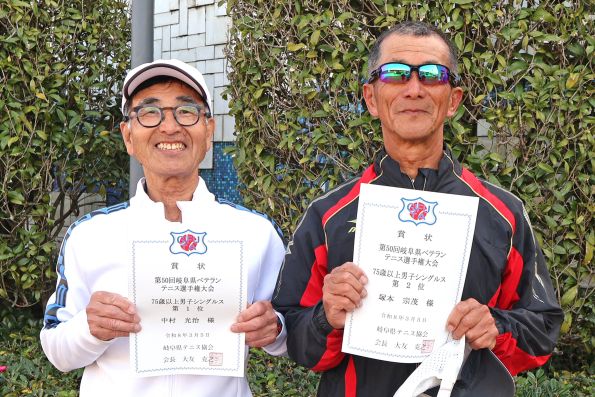 賞状
第50回岐阜県ベテラン
テニス選手権大会
75歳以上男子シングルス
第1位
中村 光治 様
令和8年3月5日
岐阜県テニス協会
会長 大友 克之
賞状
第50回岐阜県ベテラン
テニス選手権大会
75歳以上男子シングルス
第2位
塚本 宗茂 様
令和8年3月5日
岐阜県テニス協会
会長 大友 克之